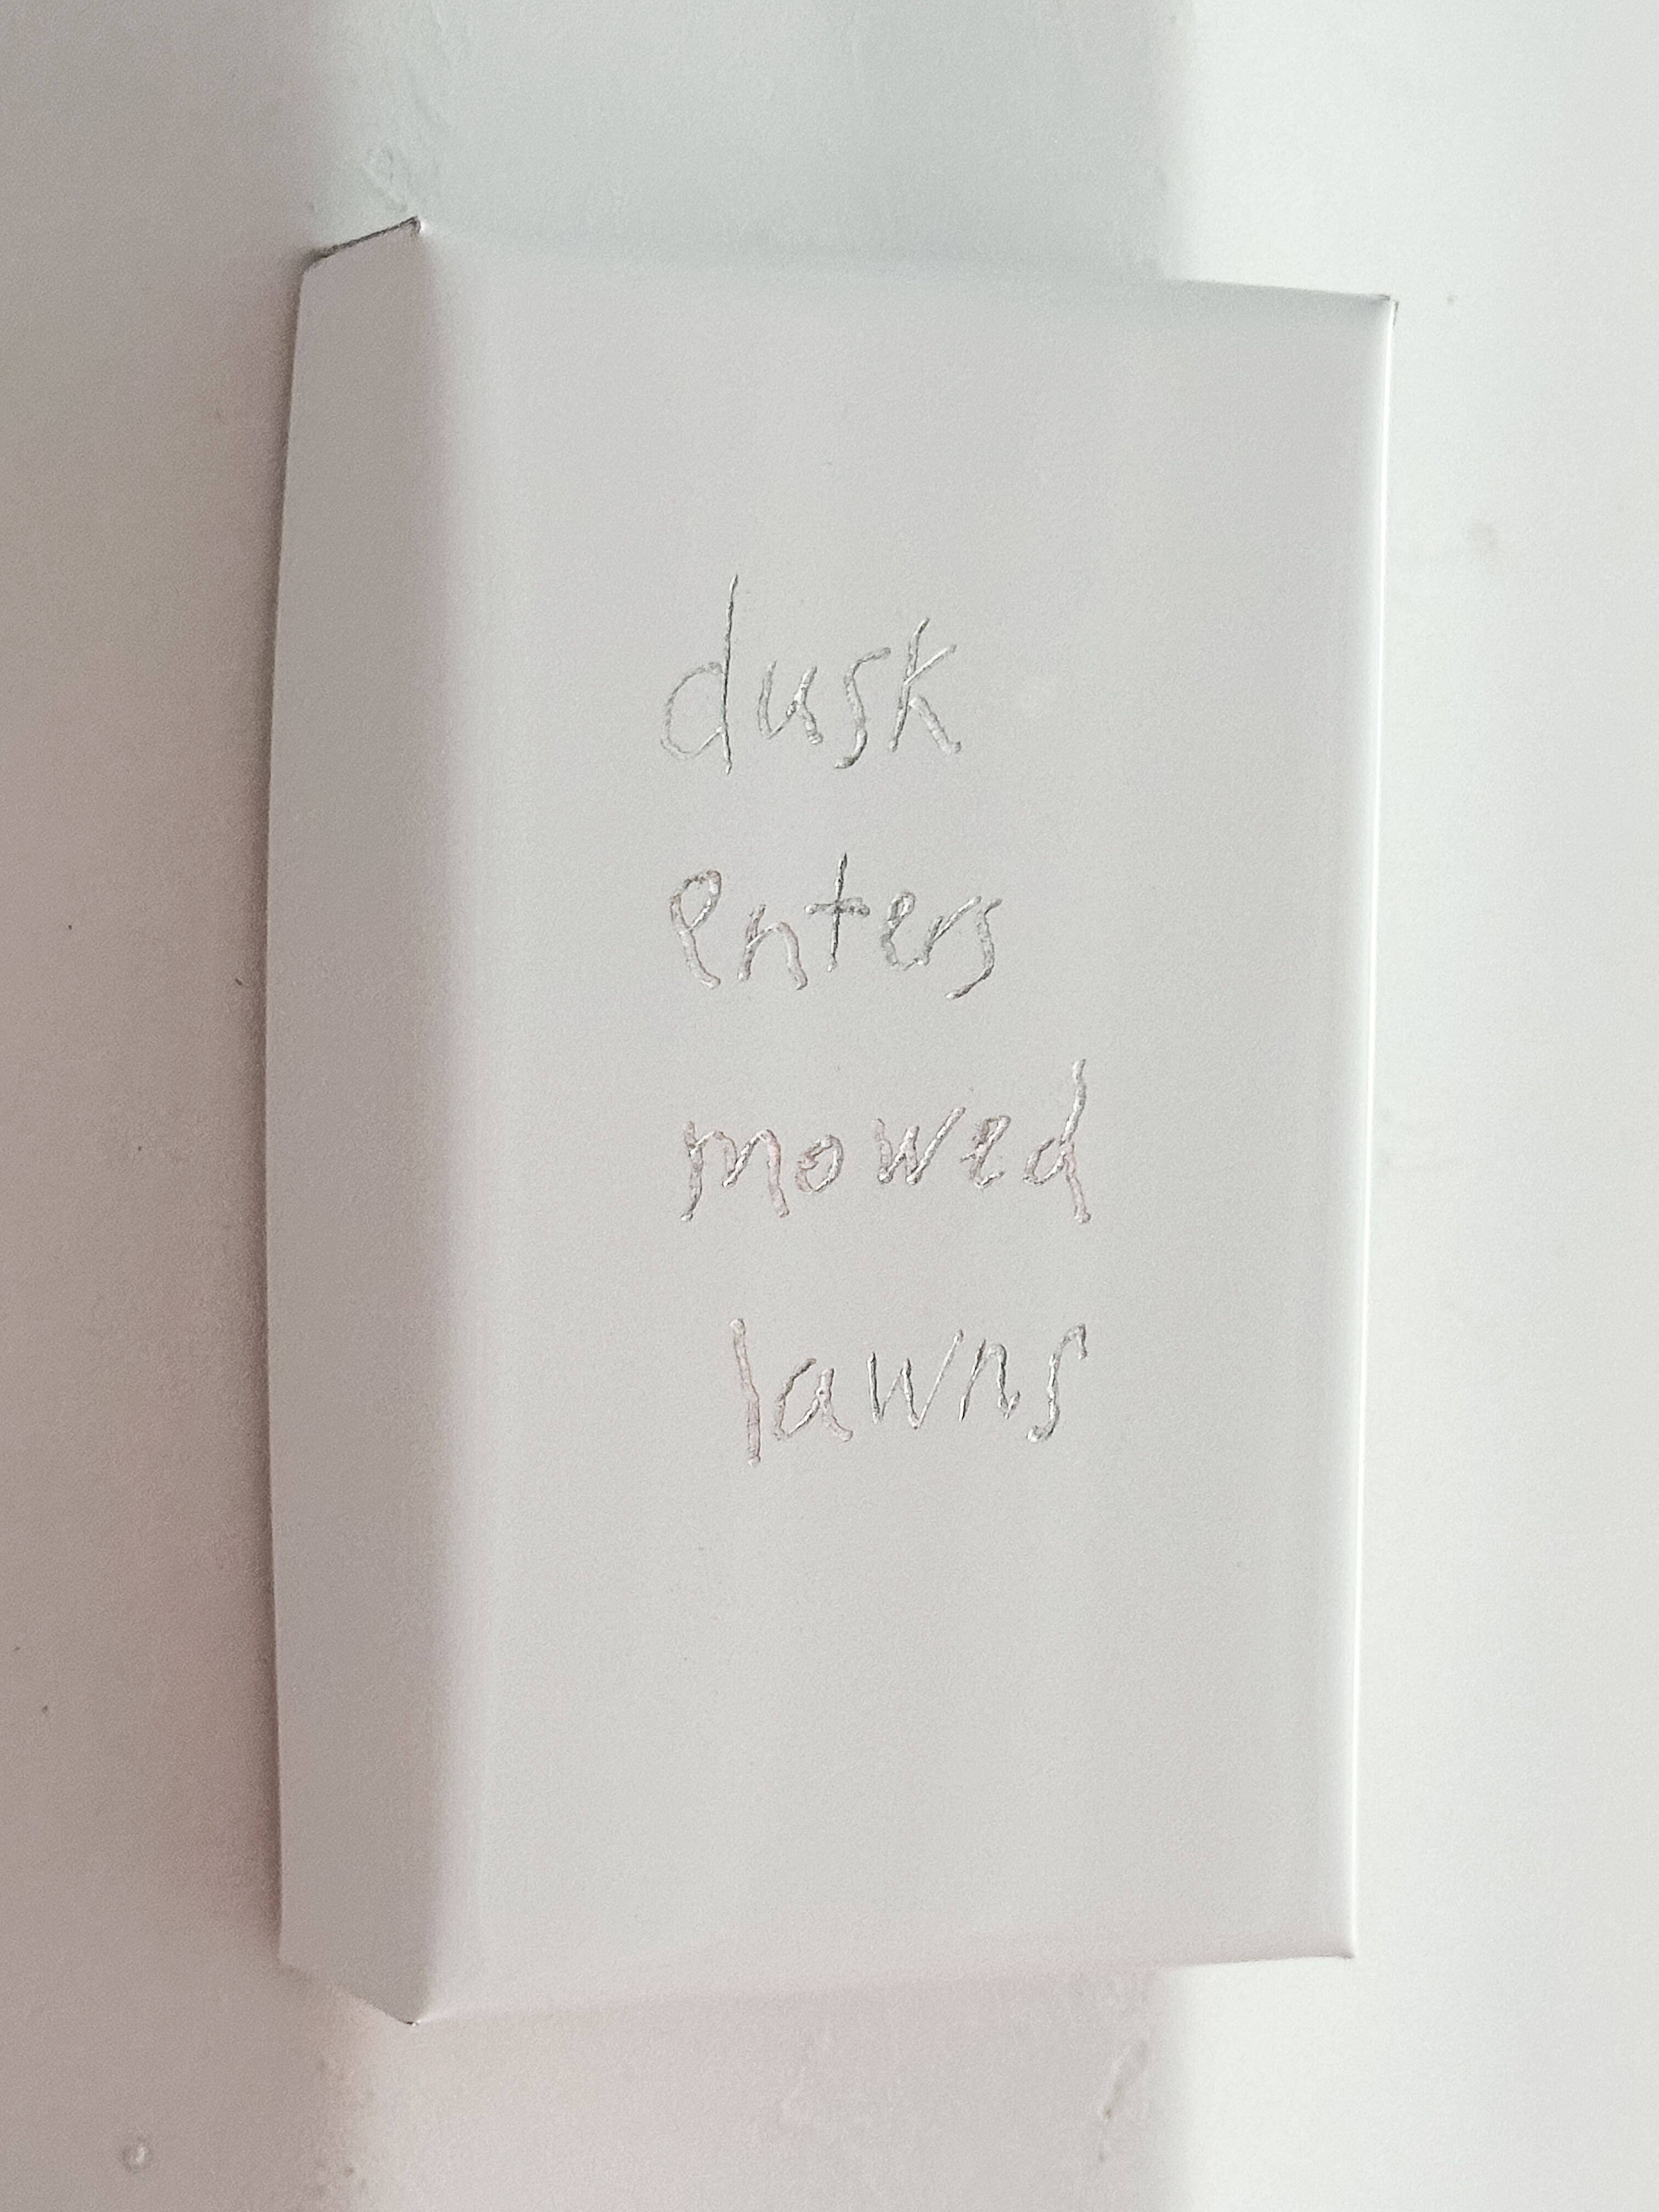 dusk
enters
mowed
lawns